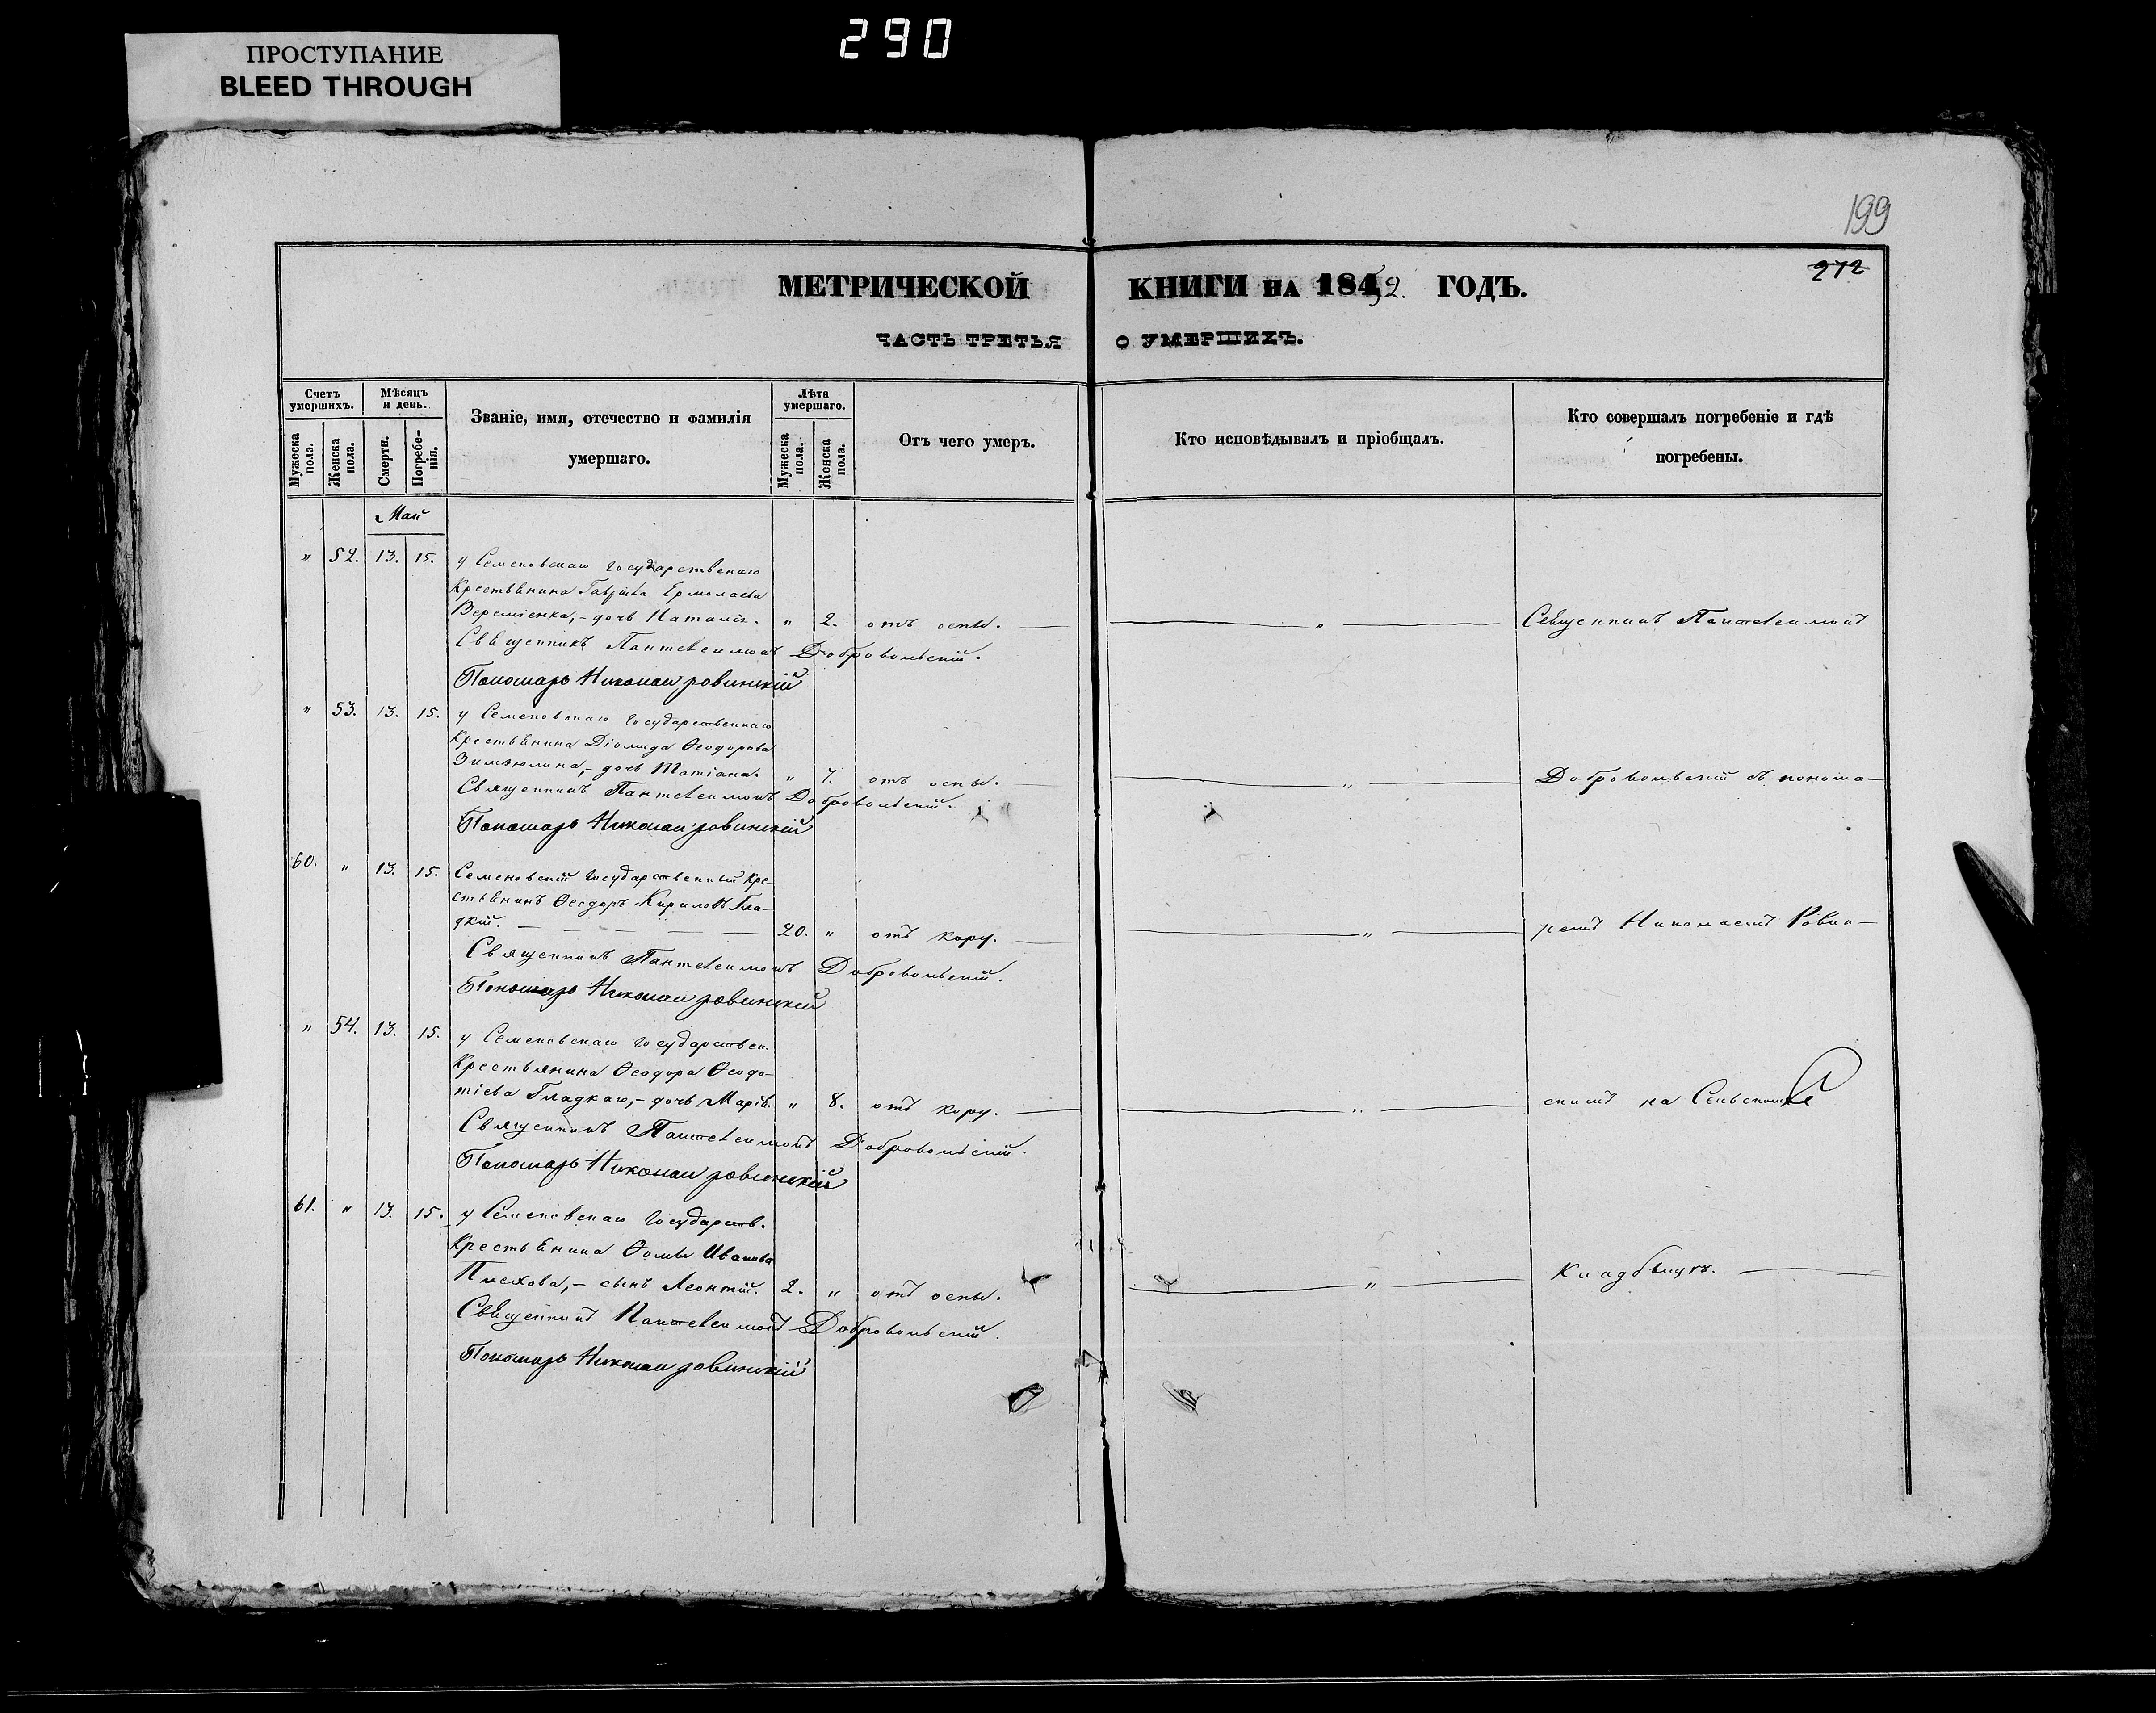 290
ПРОСТУПАНИЕ
BLEED THROUGH
199
212
МЕТРИЧЕСКОЙ КНИГИ НА 1852. ГОДЪ.
ЧАСТЬ ТРЕТЬЯ О УМЕРШИХЪ.
Счетъ умершихъ.
Мужеска пола.
Женска пола.
Мѣсяцъ и день.
Смерти.
Погребенія.
Званіе, имя, отечество и фамилія
умершаго.
Лѣта умершаго.
Мужеска пола.
Женска пола.
Отъ чего умеръ.
Кто исповѣдывалъ и пріобщалъ.
Кто совершалъ погребеніе и гдѣ
погребены.
Май
" 52. 13. 15. у Семеновскаго государственаго
крестьянина Гавріила Ермолаева
Веремѣенка, - дочь Наталія. " 2. отъ оспы. — " — Священникъ Пантелеимонъ
Священникъ Пантелеимонъ Добровольскій.
Пономарь Николай Ровинскій
" 53. 13. 15. у Семеновскаго государственнаго
крестьянина Діомида Ѳеодорова
дочь Татіана. " 7. отъ оспы. — " — Добровольскій съ понома-
Священникъ Пантелеимонъ Добровольскій.
Пономарь Николай Ровинскій
60. " 13. 15. Семеновскій государственный кре-
стьянинъ Ѳеодоръ Кириловъ Гла-
дкій. — 20. " отъ кору. — " — ремъ Николаемъ Ровин-
Священникъ Пантелеимонъ Добровольскій.
Пономарь Николай Ровинскій
" 54. 13. 15. у Семеновскаго государствен.
крестьянина Ѳеодора Ѳеодо-
тіева Гладкаго, - дочь Марія. " 8. отъ кору. — " — скимъ на Сельскомъ
Священникъ Пантелеимонъ Добровольскій.
Пономарь Николай Ровинскій
61. " 13. 15. у Семеновскаго государств.
крестьянина Ѳомы Иванова
Плехова, - сынъ Леонтій. 2. " отъ оспы. — " — кладбищѣ. —
Священникъ Пантелеимонъ Добровольскій.
Пономарь Николай Ровинскій